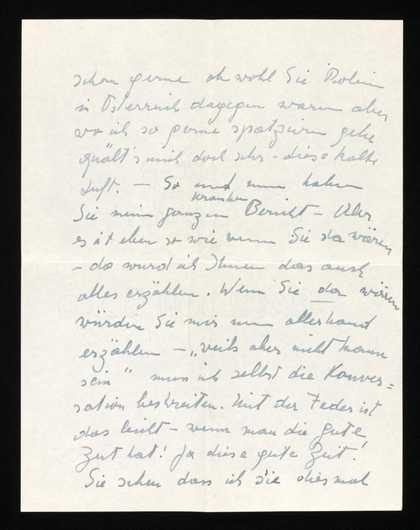 schon gerne obwohl Sie
in Österreich dagegen waren aber
wo ich so gerne spatzieren gehe
quält's mich doch sehr – diese kalte
Luft. – So und nun haben
Sie mein ganzen kranken Bericht – Aber
es ist eben so wie wenn Sie da wären
– da würd ich Ihnen das auch
alles erzählen. Wenn Sie da wären
würden Sie mir nun allerhand
erzählen – „weils aber nicht kann
sein" muss ich selbst die Konver-
sation bestreiten. Mit der Feder ist
das leicht – wenn man die gute
Zeit hat! Ja diese gute Zeit!
Sie sehen dass ich Sie diesmal